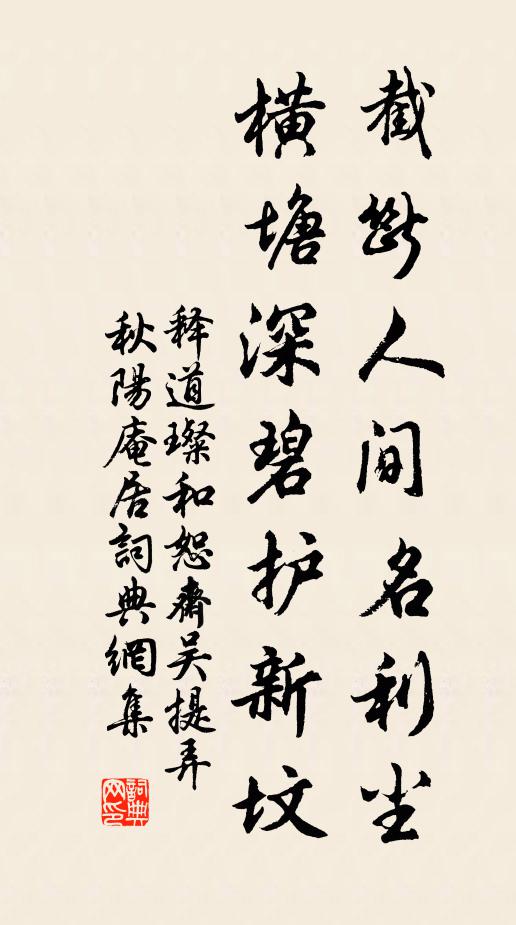 截斷人间名利尘
横塘深碧护新坟
释道璨和恕齋吴提弄
秋陽庵居詞典網集
詞典网印